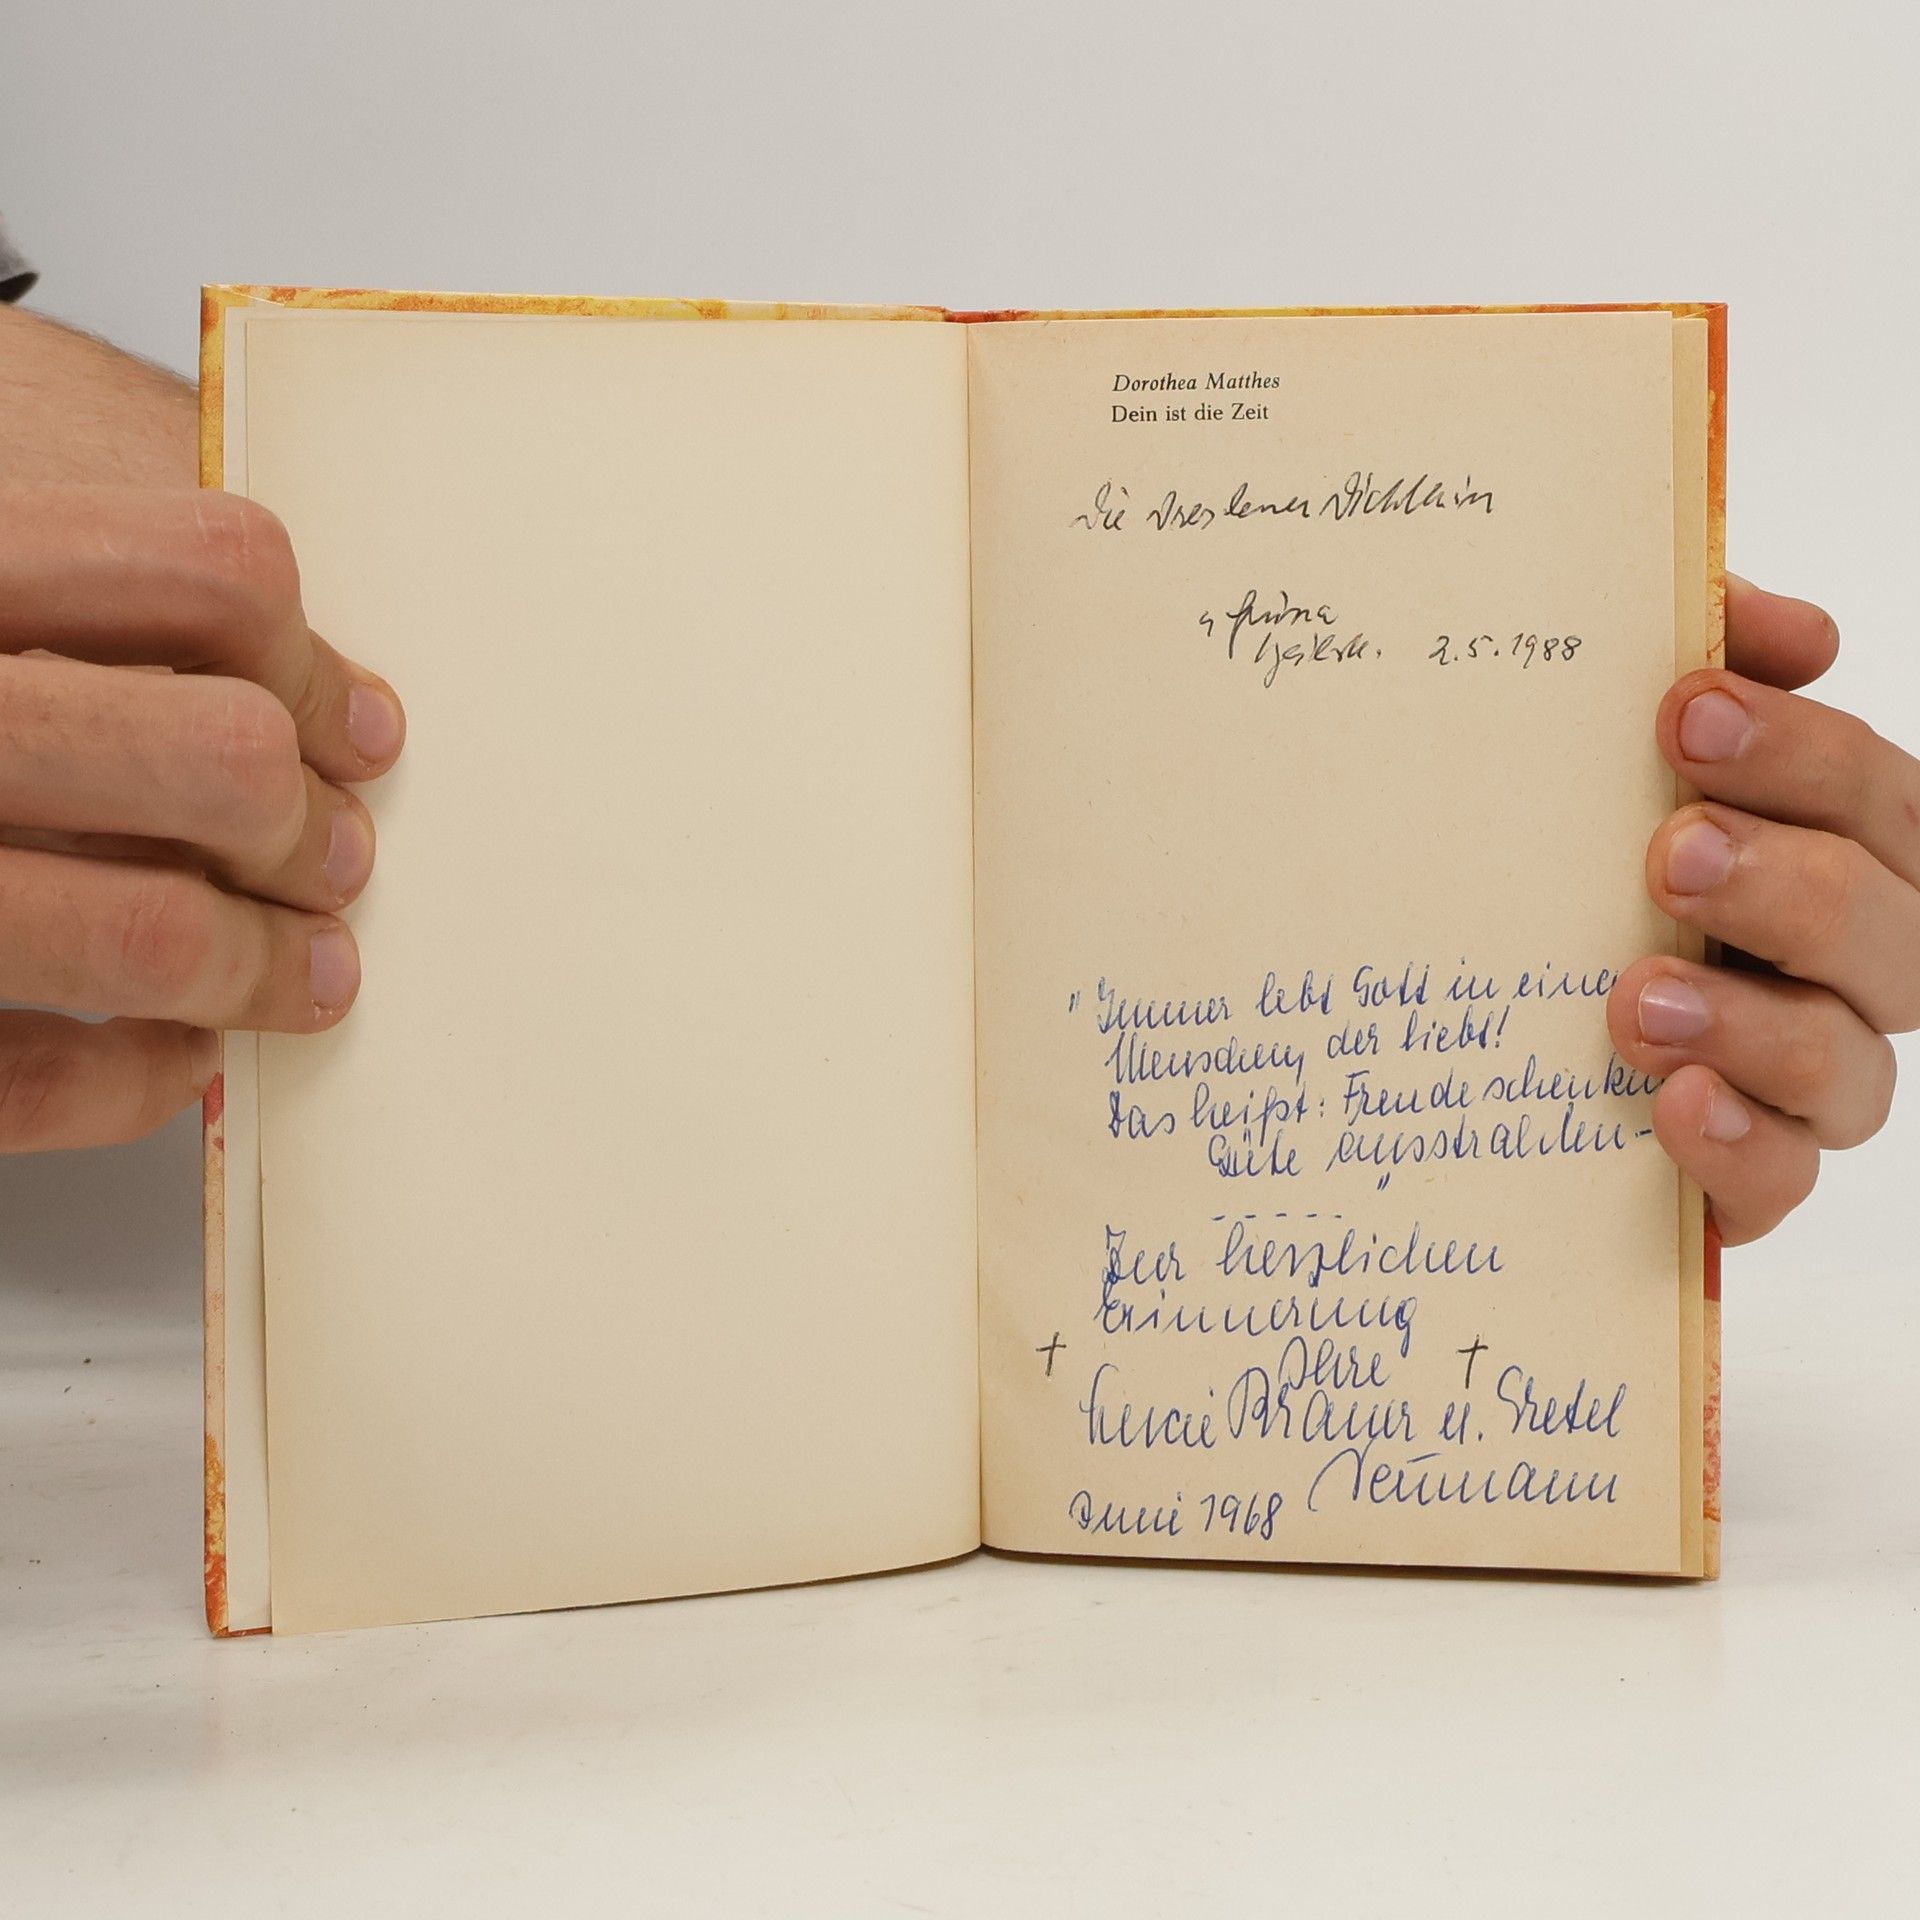 Dorothea Matthes
Dein ist die Zeit
Die Dresdener Dichterin
2.5.1988
"Immer lebt Gott in einem
Menschen, der liebt!
Das heißt: Freude schenken
Güte ausstrahlen-
"
- - - - -
Zur herzlichen
Erinnerung
Ihre
† †
Brauer u. Gretel
Neumann
Juni 1968